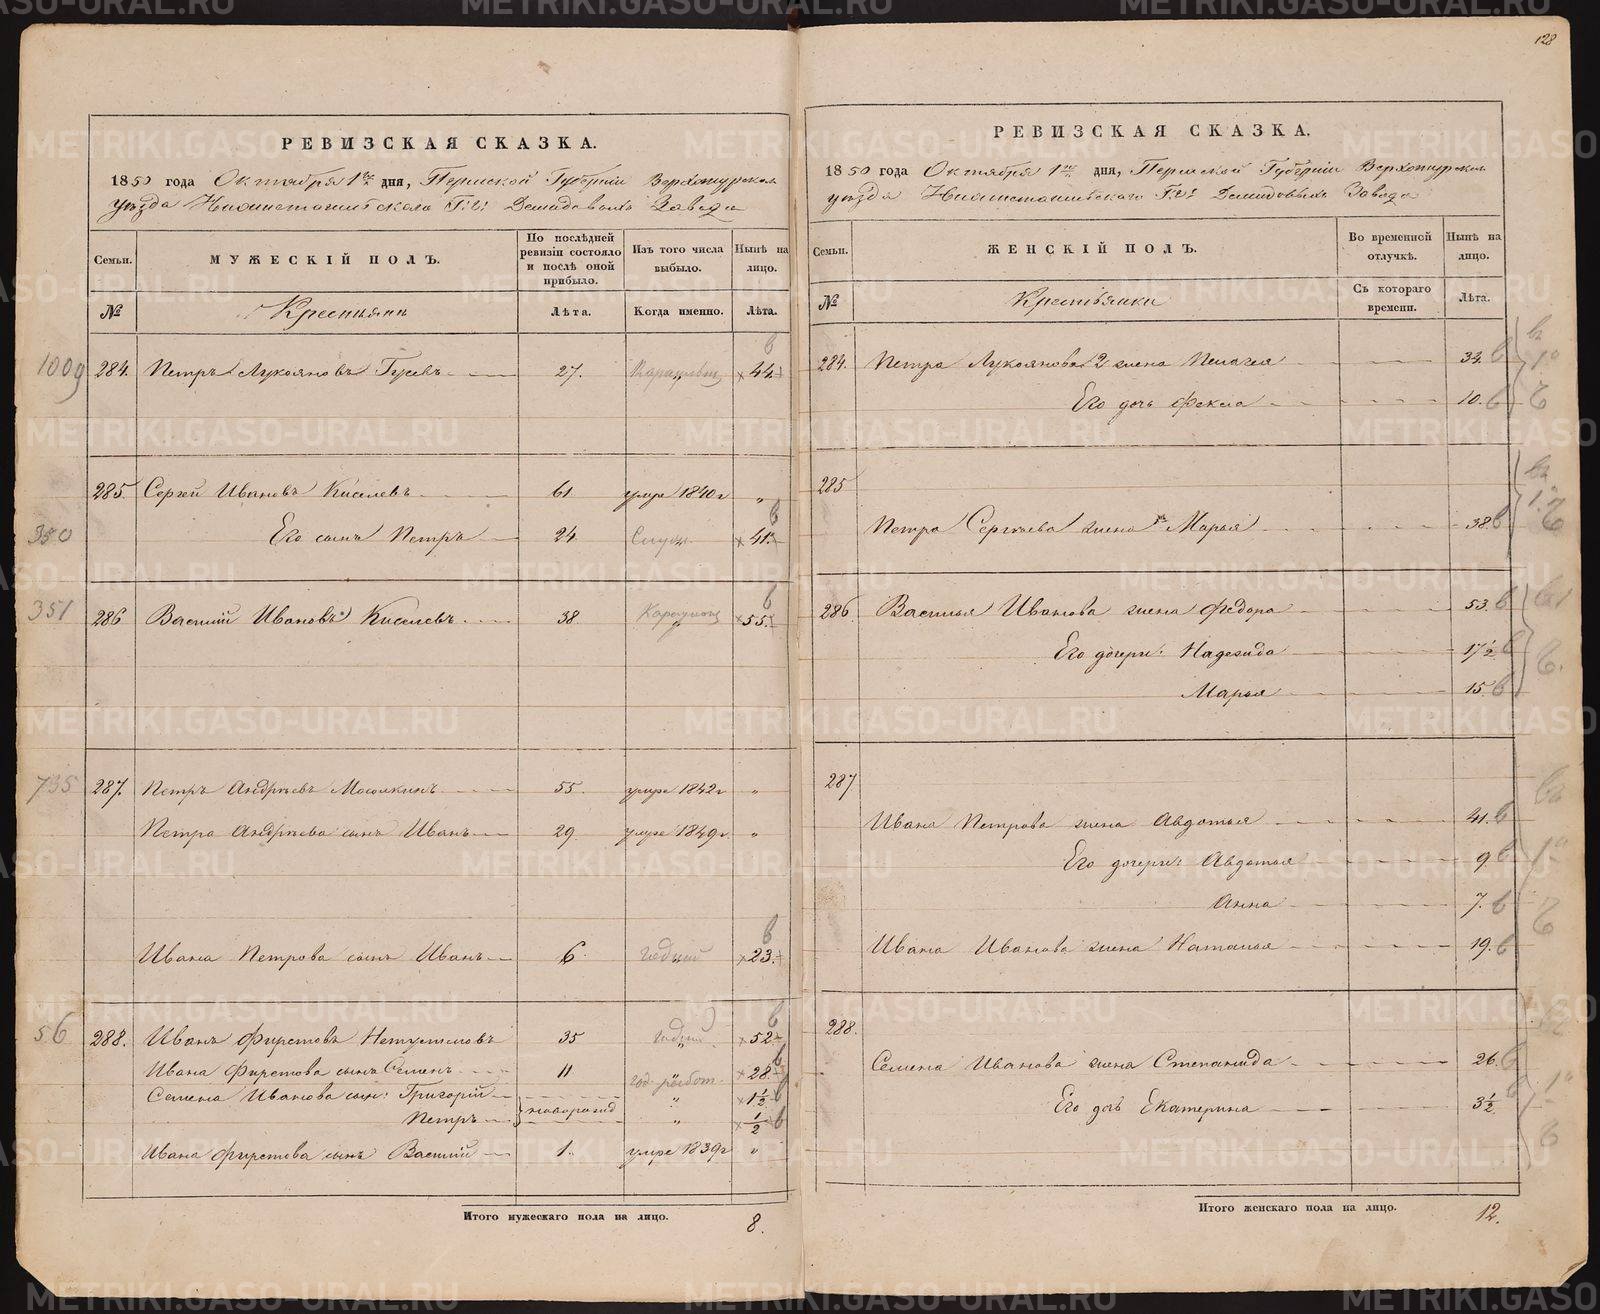 128
РЕВИЗСКАЯ СКАЗКА.
1850 года Октября 1го дня, Пермской Губерніи Верхотурскаго
уѣзда Нижнетагильскаго Г.г. Демидовыхъ Завода
Семьи. МУЖЕСКІЙ ПОЛЪ. По послѣдней ревизіи состояло и послѣ оной прибыло. Изъ того числа выбыло. Нынѣ на лицо.
№ Крестьянъ Лѣта. Когда именно. Лѣта.
1009 284. Петръ Лукояновъ Гусевъ 27. 44
285. Сергѣй Ивановъ Киселевъ 61 умре 1840г „
350 Его сынъ Петръ 24 41.
351 286 Василій Ивановъ Киселевъ 38 55.
735 287. Петръ Андреевъ 55 умре 1842г „
Петра Андреева сынъ Иванъ 29 умре 1849г „
Ивана Петрова сынъ Иванъ 6 годный 23.
56 288. Иванъ Фирстовъ 35 годный 52
Ивана Фирстова сынъ Семенъ 11 28.
Семена Иванова сын: Григорій 1½
Петръ новорожд „ ½
Ивана Фирстова сынъ Василій 1. умре 1839г „
Итого мужескаго пола на лицо. 8.
РЕВИЗСКАЯ СКАЗКА.
1850 года Октября 1го дня, Пермской Губерніи Верхотурскаго
уѣзда Нижнетагильскаго Г.г. Демидовыхъ Завода
Семьи. ЖЕНСКІЙ ПОЛЪ. Во временной отлучкѣ. Нынѣ на лицо.
№ Крестьянки Съ котораго времени. Лѣта.
284. Петра Лукоянова 2 жена Пелагея 34.
Его дочь Фекла 10.
285
Петра Сергѣева жена Марья 38.
286. Василья Иванова жена Федора 53.
Его дочери: Надежда 17½
Марья 15.
287
Ивана Петрова жена Авдотья 41.
Его дочери: Авдотья 9
Анна 7.
Ивана Иванова жена Наталья 19.
288.
Семена Иванова жена Степанида 26.
Его дочь Екатерина 3½
Итого женскаго пола на лицо. 12.
METRIKI.GASO-URAL.RU